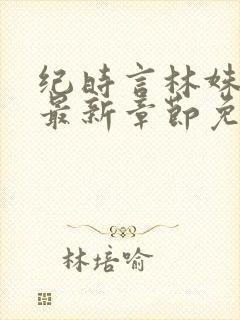 纪时言林姝
最新章节免
林培喻